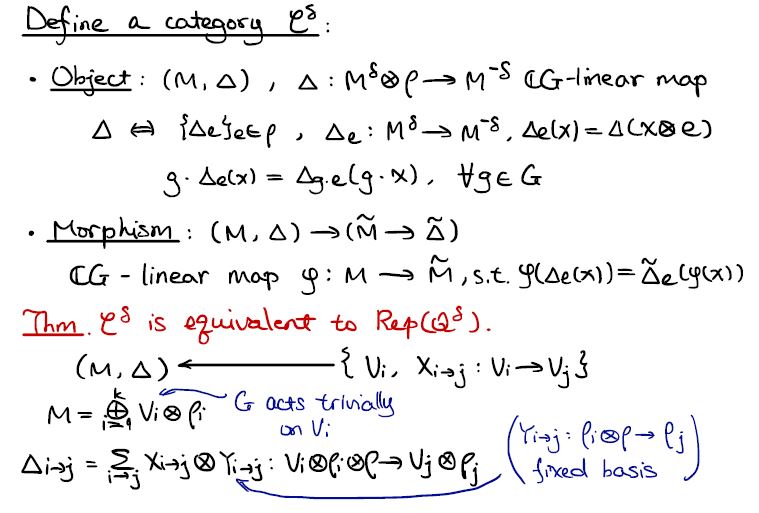 Define a category 𝒞^δ:
• Object: (M, Δ), Δ: M^δ⊗ρ → M^-δ ℂG-linear map
Δ ⇔ {Δe}e∈ρ, Δe: M^δ → M^-δ, Δe(x) = Δ(x⊗e)
g·Δe(x) = Δg·e(g·x), ∀g∈G
• Morphism: (M, Δ) → (M̃ → Δ̃)
ℂG-linear map φ: M → M̃, s.t. φ(Δe(x)) = Δ̃e(φ(x))
Thm. 𝒞^δ is equivalent to Rep(Q^δ).
(M, Δ) ← { Vi, Xi→j : Vi → Vj }
M = ⊕_{i=1}^k Vi⊗ρi G acts trivially
on Vi
(Yi→j : ρi⊗ρ → ρj
fixed basis)
Δi→j = Σ_{i→j} Xi→j ⊗ Yi→j : Vi⊗ρi⊗ρ → Vj⊗ρj